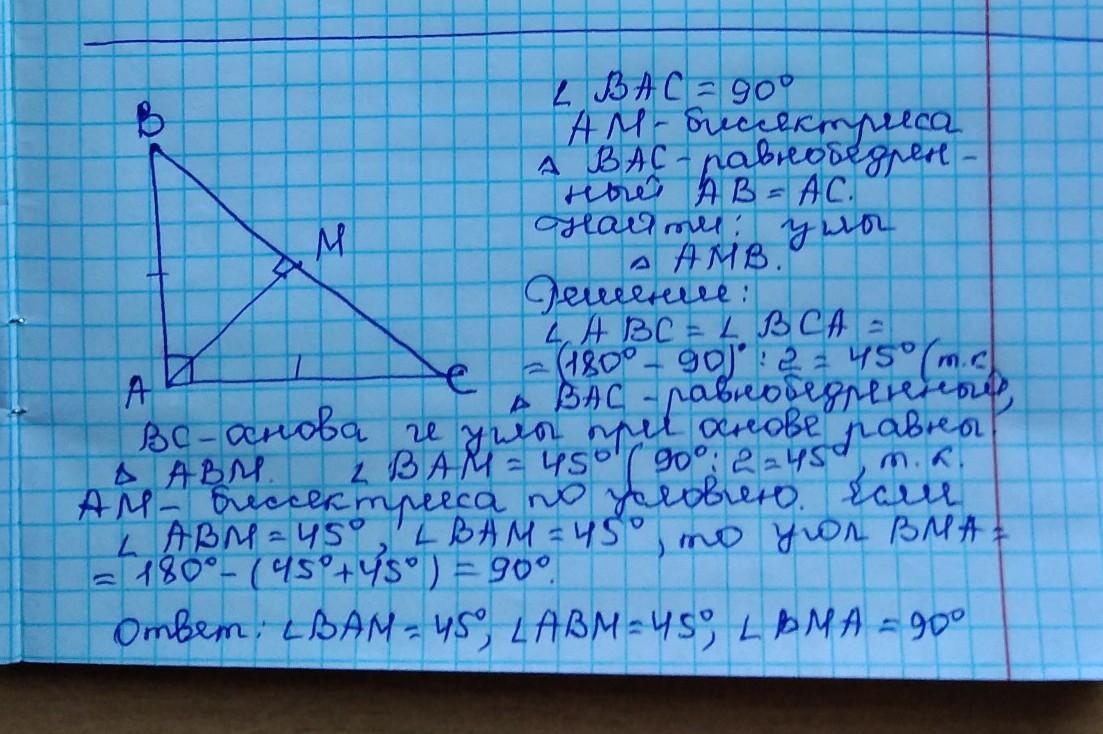 ∠ BAC = 90°
B
AM - биссектриса
△ BAC - равнобедрен-
ный AB = AC.
Найти: углы
M
△ AMB.
Решение:
∠ ABC = ∠ BCA =
= (180° - 90)° : 2 = 45° (т.к
A
C
△ BAC - равнобедренный,
BC - основа и углы при основе равны
△ ABM. ∠ BAM = 45° (90° : 2 = 45°, т.к.
AM - биссектриса по условию. Если
∠ ABM = 45°, ∠ BAM = 45°, то угол BMA =
= 180° - (45° + 45°) = 90°.
Ответ: ∠BAM = 45°, ∠ABM = 45°, ∠ BMA = 90°